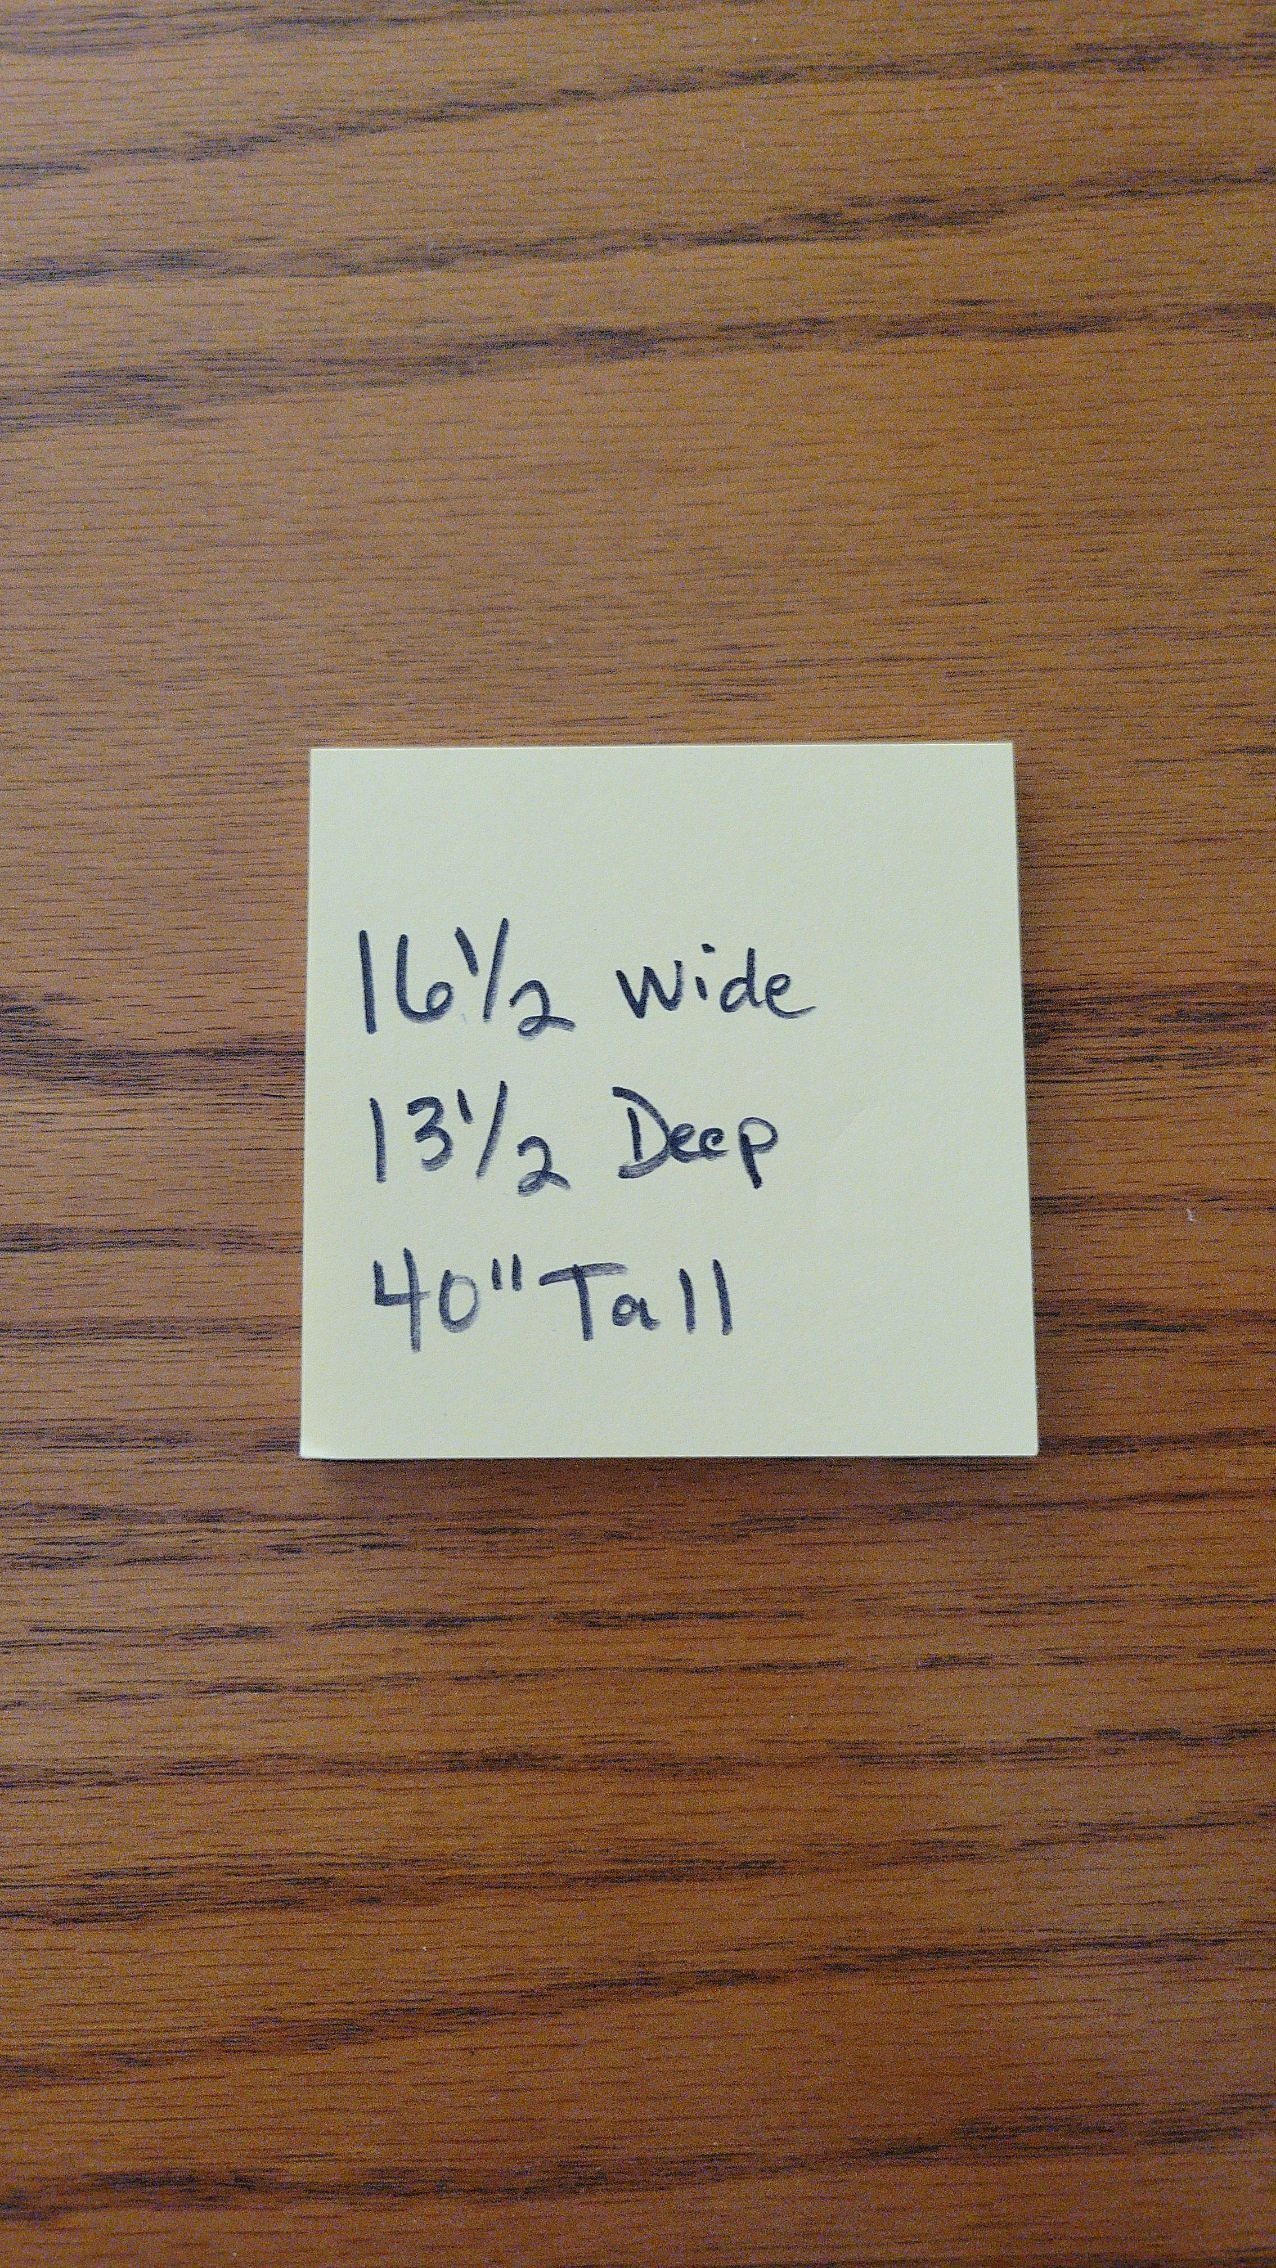 16 1/2 Wide
13 1/2 Deep
40" Tall